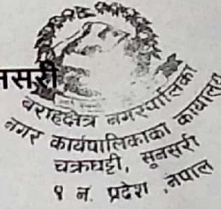 नसरी
बराहक्षेत्र नगरपालिका
नगर कार्यपालिकाको कार्यालय
चक्रघट्टी, सुनसरी
१ नं. प्रदेश, नेपाल